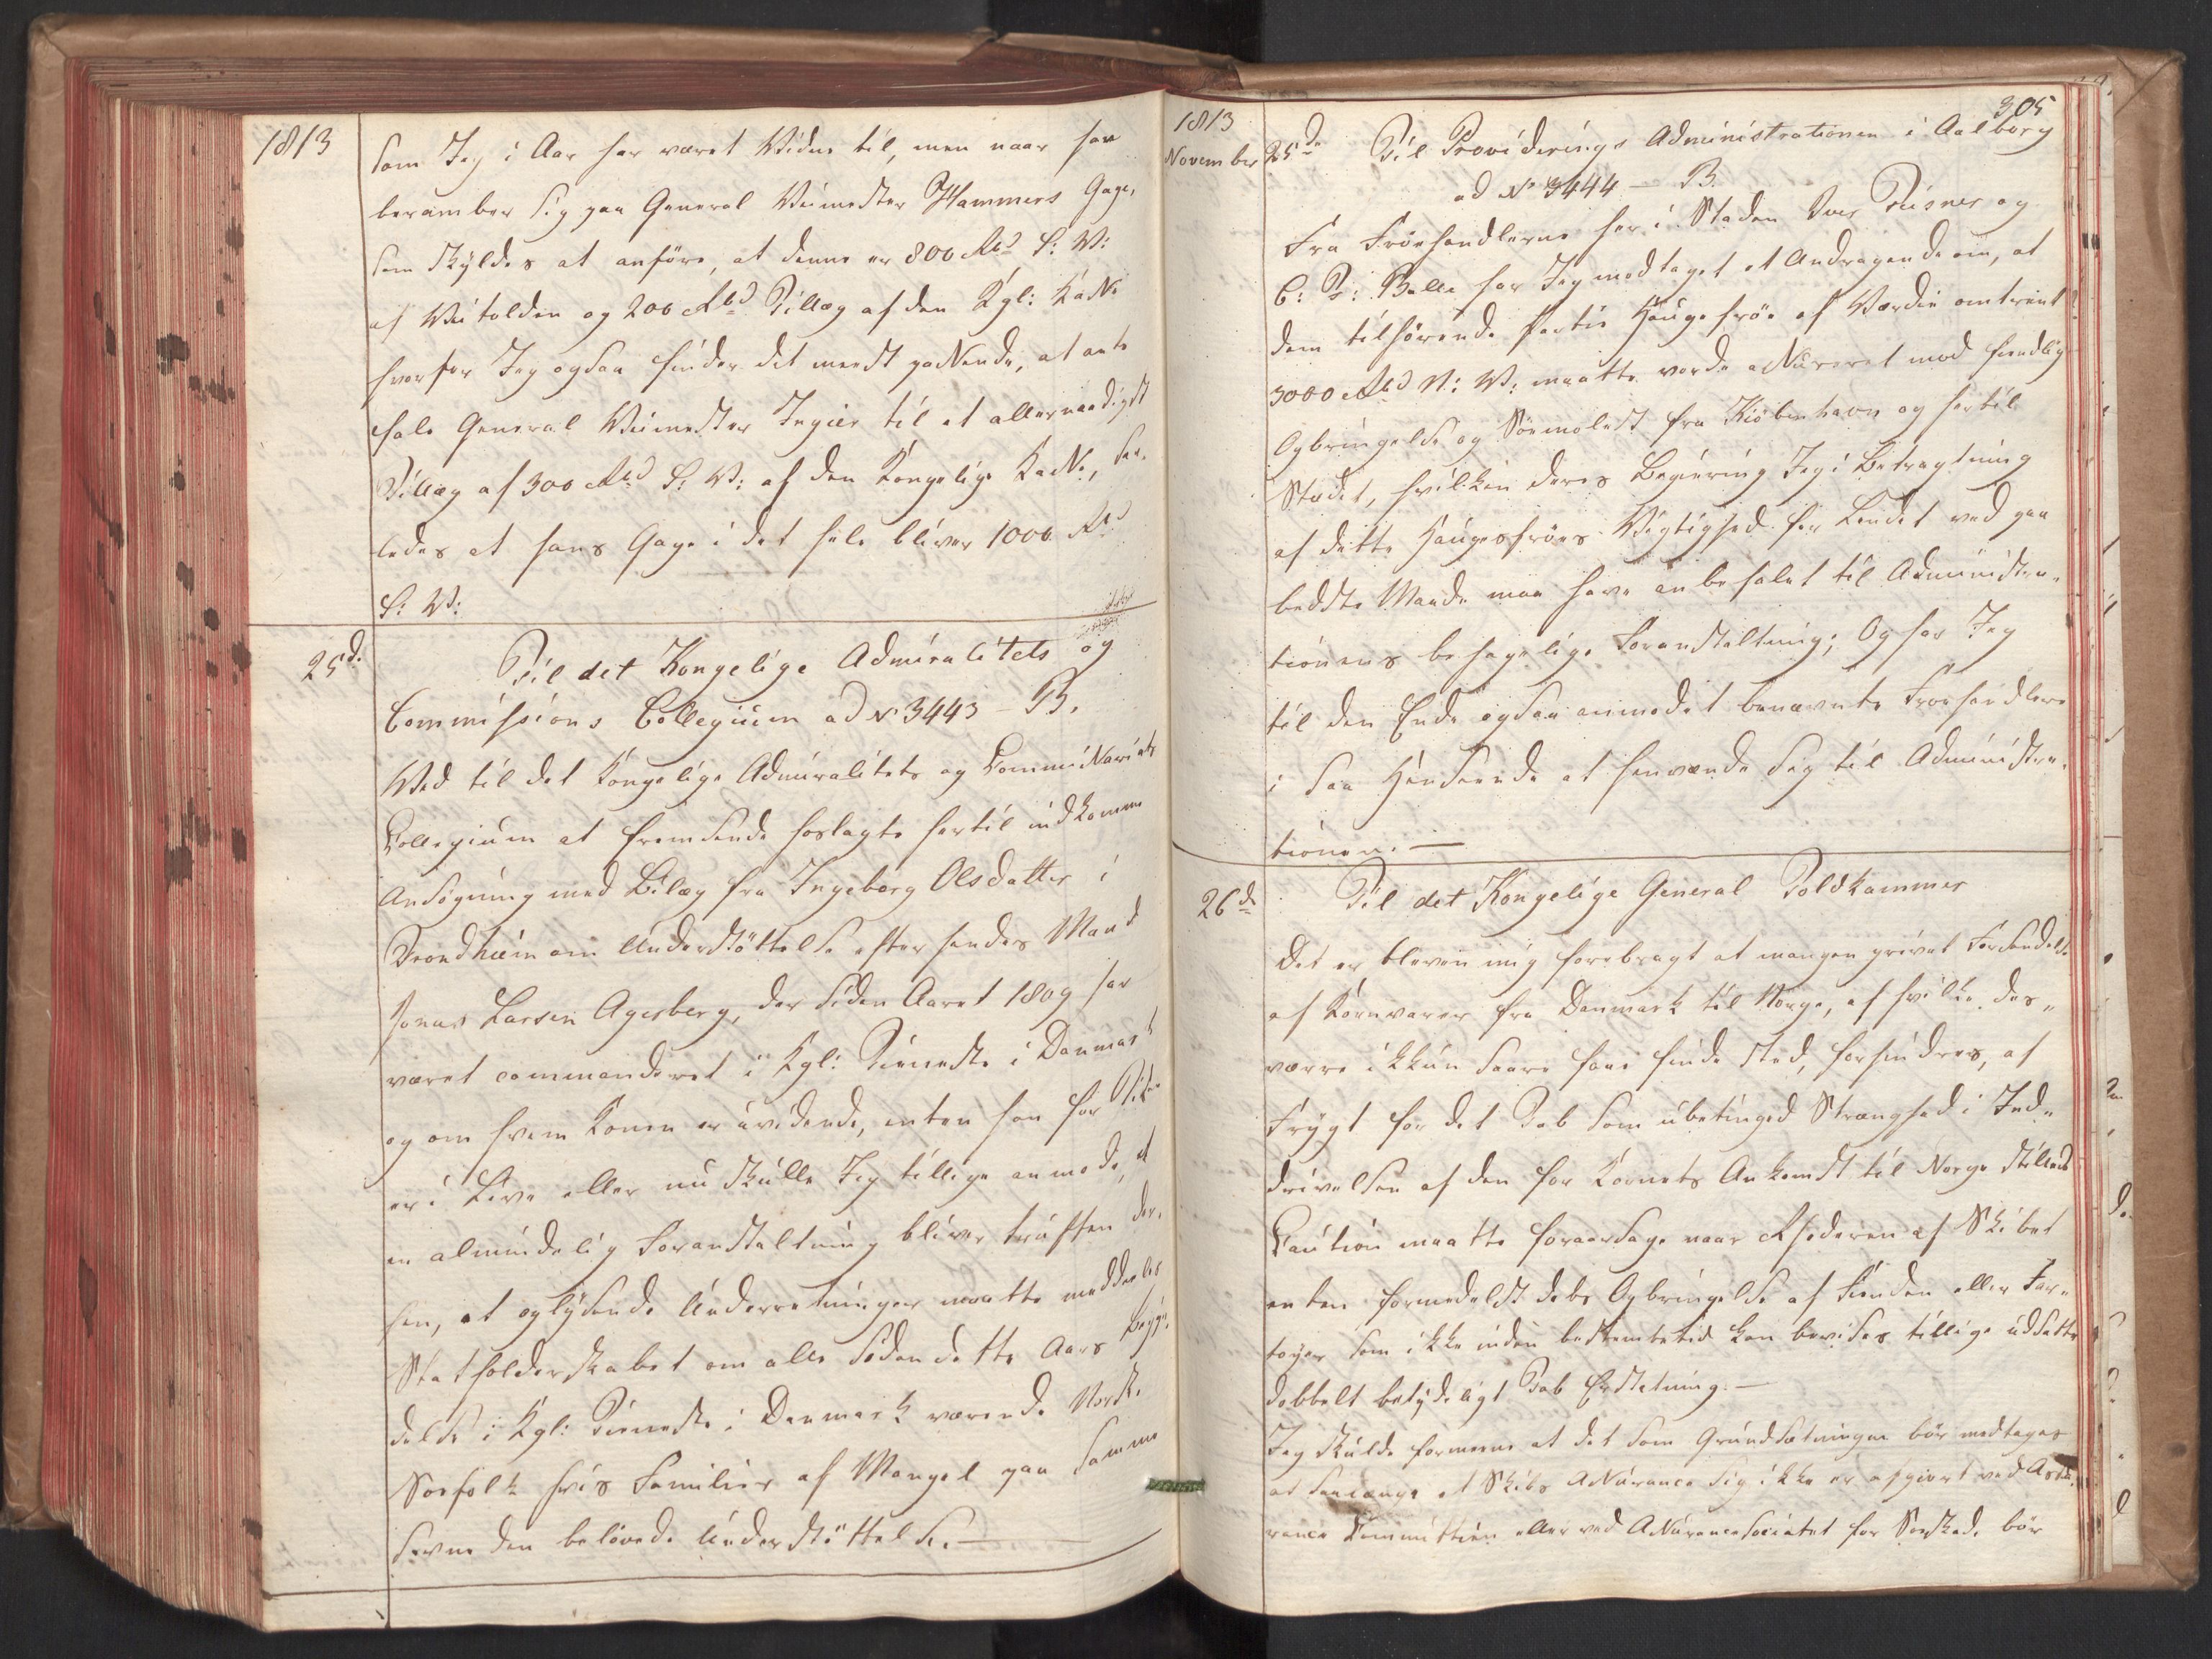 1813
som Jeg i Aar har været Vidne til, men naar han
beraaber sig paa General Veimester Hammers Gage,
som skyldes at anføre, at denne er 800 Rbd S: V:
af Veitolden og 200 Rbd Tillæg af den Kgl: Kasse
hvorfor Jeg ogsaa finder det meest passende, at anbe
fale General Veimester Ingier til et allernaadigst
Tillæg af 300 Rbd S: V: af den Kongelige Kasse, saa-
ledes at hans Gage i det hele bliver 1000 Rbd
S: V:
25d.
Til det Kongelige Admiralitets og
Commissions Collegium ad No 3443 - B.
Ved til det Kongelige Admiralitets og Commissariats
Collegium at fremsende hoslagte hertil indkomne
Ansøgning med Bilag fra Ingeborg Olsdatter i
Trondhiem om Understøttelse efter hendes Mand
Jonas Larsen Agesberg, der siden Aaret 1809 har
været commanderet i Kgl: Tieneste i Danmark
og om hvem Konen er uvidende, enten han for Tiden
er i Live eller nu skulle Jeg tillige anmode, at
en almindelig Foranstaltning bliver truffen der-
hen, at oplysende Underretninger maatte meddeles
Statholderskabet om alle siden dette Aars Begyn-
delse i Kgl: Tieneste i Danmark værende Norske
Søefolk hvis Familier af Mangel paa samme
savne den belovede Understøttelse.—
305
1813
November 25de
Til Providerings Administrationen i Aalborg
ad No 3444 — B.
Fra Frøehandlerne her i Staden Iver Prisner og
C: P: Balle har Jeg modtaget et Andragende om, at
dem tilhørende Partie Haugefrøe af Værdie omtrent
3000 Rbd N: V: maatte vorde assureret mod fiendlig
Opbringelse og Søemolest fra Kiøbenhavn og hertil
Stædet, hvilken deres Begiering Jeg i Betragtning
af dette Haugefrøes Vigtighed for Landet ved paa
bedste Maade maa have anbefalet til Administra-
tionens behagelige Foranstaltning; Og har Jeg
til den Ende ogsaa anmodet benævnte Frøehandlere
i saa Henseende at henvende sig til Administra-
tionen.—
26de
Til det Kongelige General Toldkammer
Det er bleven mig forebragt at mangen privat Forsendelse
af Kornvarer fra Danmark til Norge, af hvilke des-
værre ikkun saare faae finde Sted, forhindres, af
Frygt for det Tab som ubetinget Strænghed i Ind-
drivelsen af den for Kornets Ankomst til Norge stillede
Caution maatte foraarsage naar Rhederen af Skibet
enten formedelst dets Opbringelse af Fienden eller Far-
tøyer som ikke inden bestemte tid kan bevises tillige udsatte
dobbelt betydeligt Tab Erstatning.—
Jeg skulde formeene at det som Grundsætninger bør modtages
at saalænge et Skibs Assurance sig ikke er afgiort ved Assu-
rance Committeen eller ved Assurancesocietet for Søeskade bør